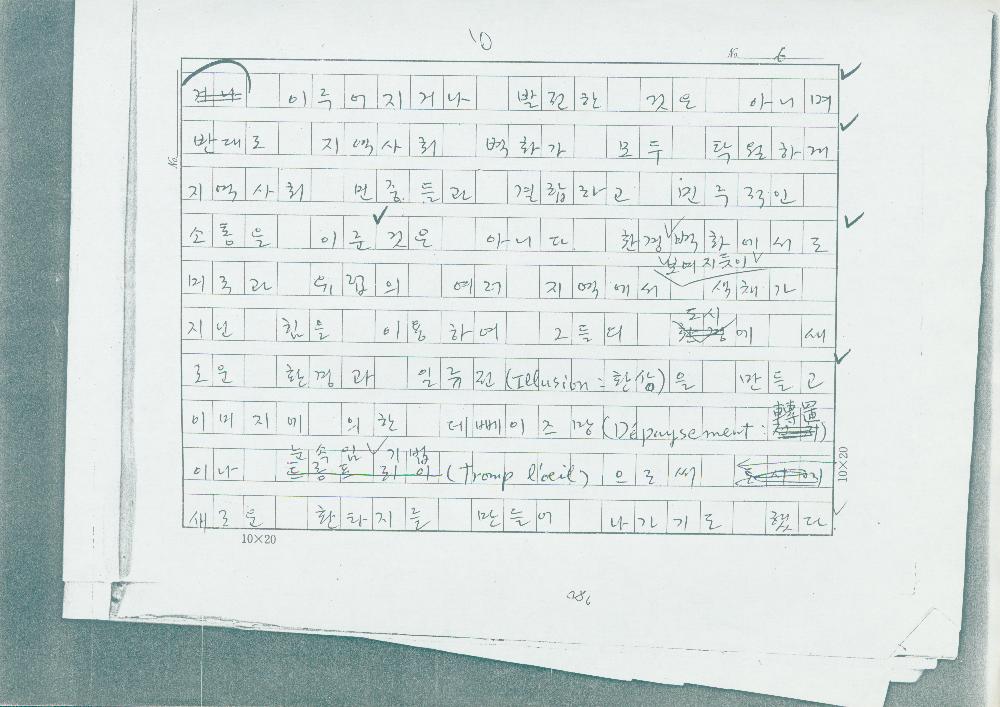 10
No. 6
이루어지거나 발전한 것은 아니며
반대로 지역사회 벽화가 모두 탁월하게
No.
지역사회 민중들과 결합하고 민주적인
소통을 이룬 것은 아니다. 환경벽화에서로
보여지듯이
미국과 유럽의 여러 지역에서 색채가
도시
지닌 힘을 이용하여 그들의 환경에 새
로운 환경과 일루젼(Illusion:환상)을 만들고
轉置
이미지에 의한 데뻬이즈망(Dépaysement:
눈속임 기법
이나 트롱프뢰이(Tromp l'oeil)으로써
새로운 환타지를 만들어 나가기도 했다
10×20
10×20
286